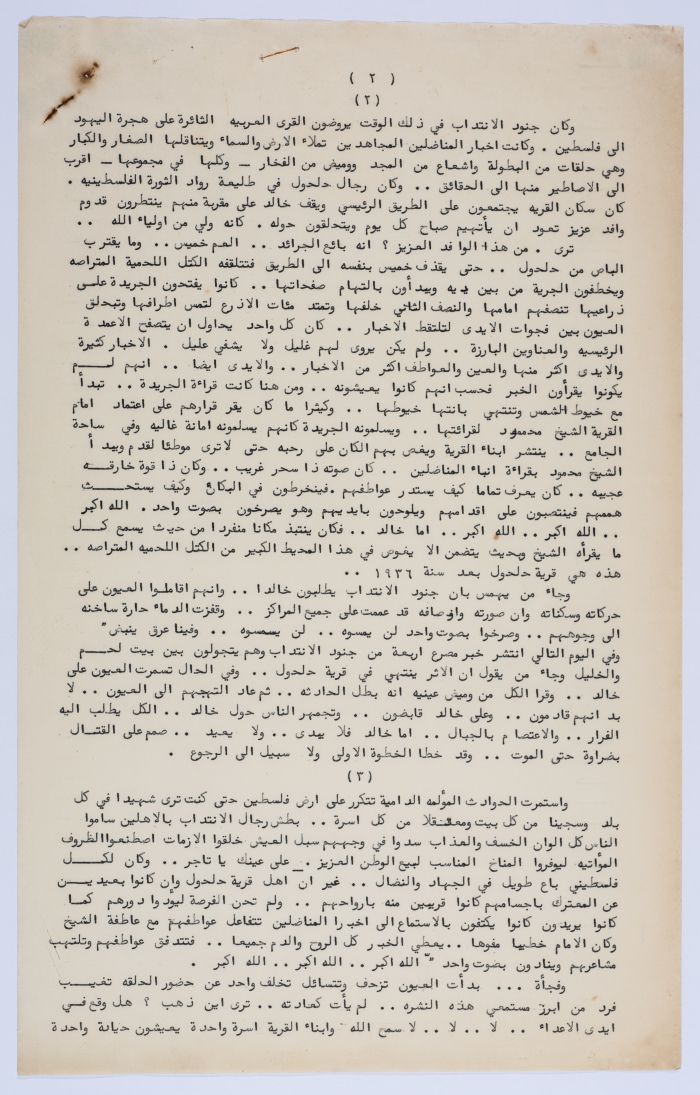 ( ٢ )
(٢)
وكان جنود الانتداب في ذلك الوقت يروضون القرى العربيه الثائرة على هجرة اليهود
الى فلسطين . وكانت اخبار المناضلين المجاهدين تملاء الارض والسماء ويتناقلها الصغار والكبار
وهي حلقات من البطولة واشعاع من المجد ووميض من الفخار — وكلها في مجموعها — اقرب
الى الاصاطير منها الى الحقائق .. وكان رجال حلحول في طليعة رواد الثورة الفلسطينيه .
كان سكان القريه يجتمعون على الطريق الرئيسي ويقف خالد على مقربة منهم ينتطرون قدوم
وافد عزيز تعود ان يأتيهم صباح كل يوم ويتحلقون حوله . كانه ولي من اولياء الله ..
ترى . من هذا الوافد العزيز ؟ انه بائع الجرائد .. العم خميس .. وما يقترب
الباص من حلحول .. حتى يقذف خميس بنفسه الى الطريق فتتلقفه الكتل اللحمية المتراصه
ويخطفون الجرية من بين يديه ويبدأون بالتهام صفحاتها .. كانوا يفتحون الجريدة على
ذراعيها تنصفهم امامها والنصف الثاني خلفها وتمتد مئات الاذرع لتمس اطرافها وتبحلق
العيون بين فجوات الايدى لتلتقط الاخبار .. كان كل واحد يحاول ان يتصفح الاعمدة
الرئيسيه والعناوين البارزة .. ولم يكن يروى لهم غليل ولا يشفي عليل . الاخبار كثيرة
والايدى اكثر منها والعين والعواطف اكثر من الاخبار .. والايدى ايضا .. انهم لم
يكونوا يقرأون الخبر فحسب انهم كانوا يعيشونه .. ومن هنا كانت قراءة الجريدة .. تبدأ
مع خيوط الشمس وتنتهي بانتها خيوطها .. وكيثرا ما كان يقر قرارهم على اعتماد امام
القرية الشيخ محمود لقرائتها .. ويسلمونه الجريدة كانهم يسلمونه امانة غاليه وفي ساحة
الجامع .. ينتشر ابناء القرية ويغص بهم الكان على رحبه حتى لا ترى موطئا لقدم ويبدأ
الشيخ محمود بقراءة انباء المناضلين .. كان صوته ذا سحر غريب .. وكان ذا قوة خارقه
عجيبه .. كان يعرف تماما كيف يستدر عواطفهم .فينخرطون في البكاء وكيف يستحث
هممهم فينتصبون على اقدامهم ويلوحون بايديهم وهو يصرخون بصوت واحد . الله اكبر
.. الله اكبر .. الله اكبر .. اما خالد .. فكان ينتبذ مكانا منفردا من حيث يسمع كل
ما يقرأه الشيخ وبحيث يتضمن الا يغوص في هذا المحيط الكبير من الكتل اللحميه المتراصه ..
هذه هي قرية حلحول بعد سنة ١٩٣٦ ..
وجاء من يهمس بان جنود الانتداب يطلبون خالدا .. وانهم اقاملوا العيون على
حركاته وسكناته وان صورته واوصافه قد عممت على جميع المراكز .. وقفزت الدماء حارة ساخنه
الى وجوههم .. وصرخوا بصوت واحد لن يمسوه .. لن يسمسوه .. وفينا عرق ينبض "
وفي اليوم التالي انتشر خبر مصرع اربعة من جنود الانتداب وهم يتجولون بين بيت لحم
والخليل وجاء من يقول ان الاثر ينتهي في قرية حلحول .. وفي الحال تسمرت العيون على
خالد .. وقرا الكل من وميض عينيه انه بطل الحادثه .. ثم عاد التهجهم الى العيون .. لا
بد انهم قادمون .. وعلى خالد قابضون .. وتجمهر الناس حول خالد .. الكل يطلب اليه
الفرار .. والاعتصام بالجبال .. اما خالد فلا يبدى .. ولا يعيد .. صمم على القتال
بضراوة حتى الموت .. وقد خطا الخطوة الاولى ولا سبيل الى الرجوع .
(٣)
واستمرت الحوادث المؤلمه الدامية تتكرر على ارض فلسطين حتى كنت ترى شهيدا في كل
بلد وسجينا من كل بيت ومعتقلا من كل اسرة .. بطش رجال الانتداب بالاهلين ساموا
الناس كل الوان الخسف والعذاب سدوا في وجههم سبل العيش خلقوا الازمات اصطنعوا الظروف
المؤاتيه ليوفروا المناخ المناسب لبيع الوطن العزيز . _ على عينك يا تاجر .. وكان لكل
فلسطيني باع طويل في الجهاد والنضال .. غير ان اهل قرية حلحول وان كانوا بعيدين
عن المعترك باجسامهم كانوا قريبين منه بارواحهم .. ولم تحن الفرصة ليؤدوا دورهم كما
كانوا يريدون كانوا يكتفون بالاستماع الى اخبرا المناضلين تتفاعل عواطفهم مع عاطفة الشيخ
وكان الامام خطيبا مفوها .. يعطي الخبر كل الروح والدم جميعا .. فتتدفق عواطفهم وتلتهب
مشاعرهم وينادون بصوت واحد " الله اكبر .. الله اكبر .. الله اكبر .
وفجأة ... بدأت العيون تزحف وتتسائل تخلف واحد عن حضور الحلقه تغيب
فرد من ابرز مستمعي هذه النشره .. لم يأت كعادته .. ترى اين ذهب ؟ هل وقع في
ايدى الاعداء .. لا .. لا .. لا سمح الله وابناء القرية اسرة واحدة يعيشون حياة واحدة